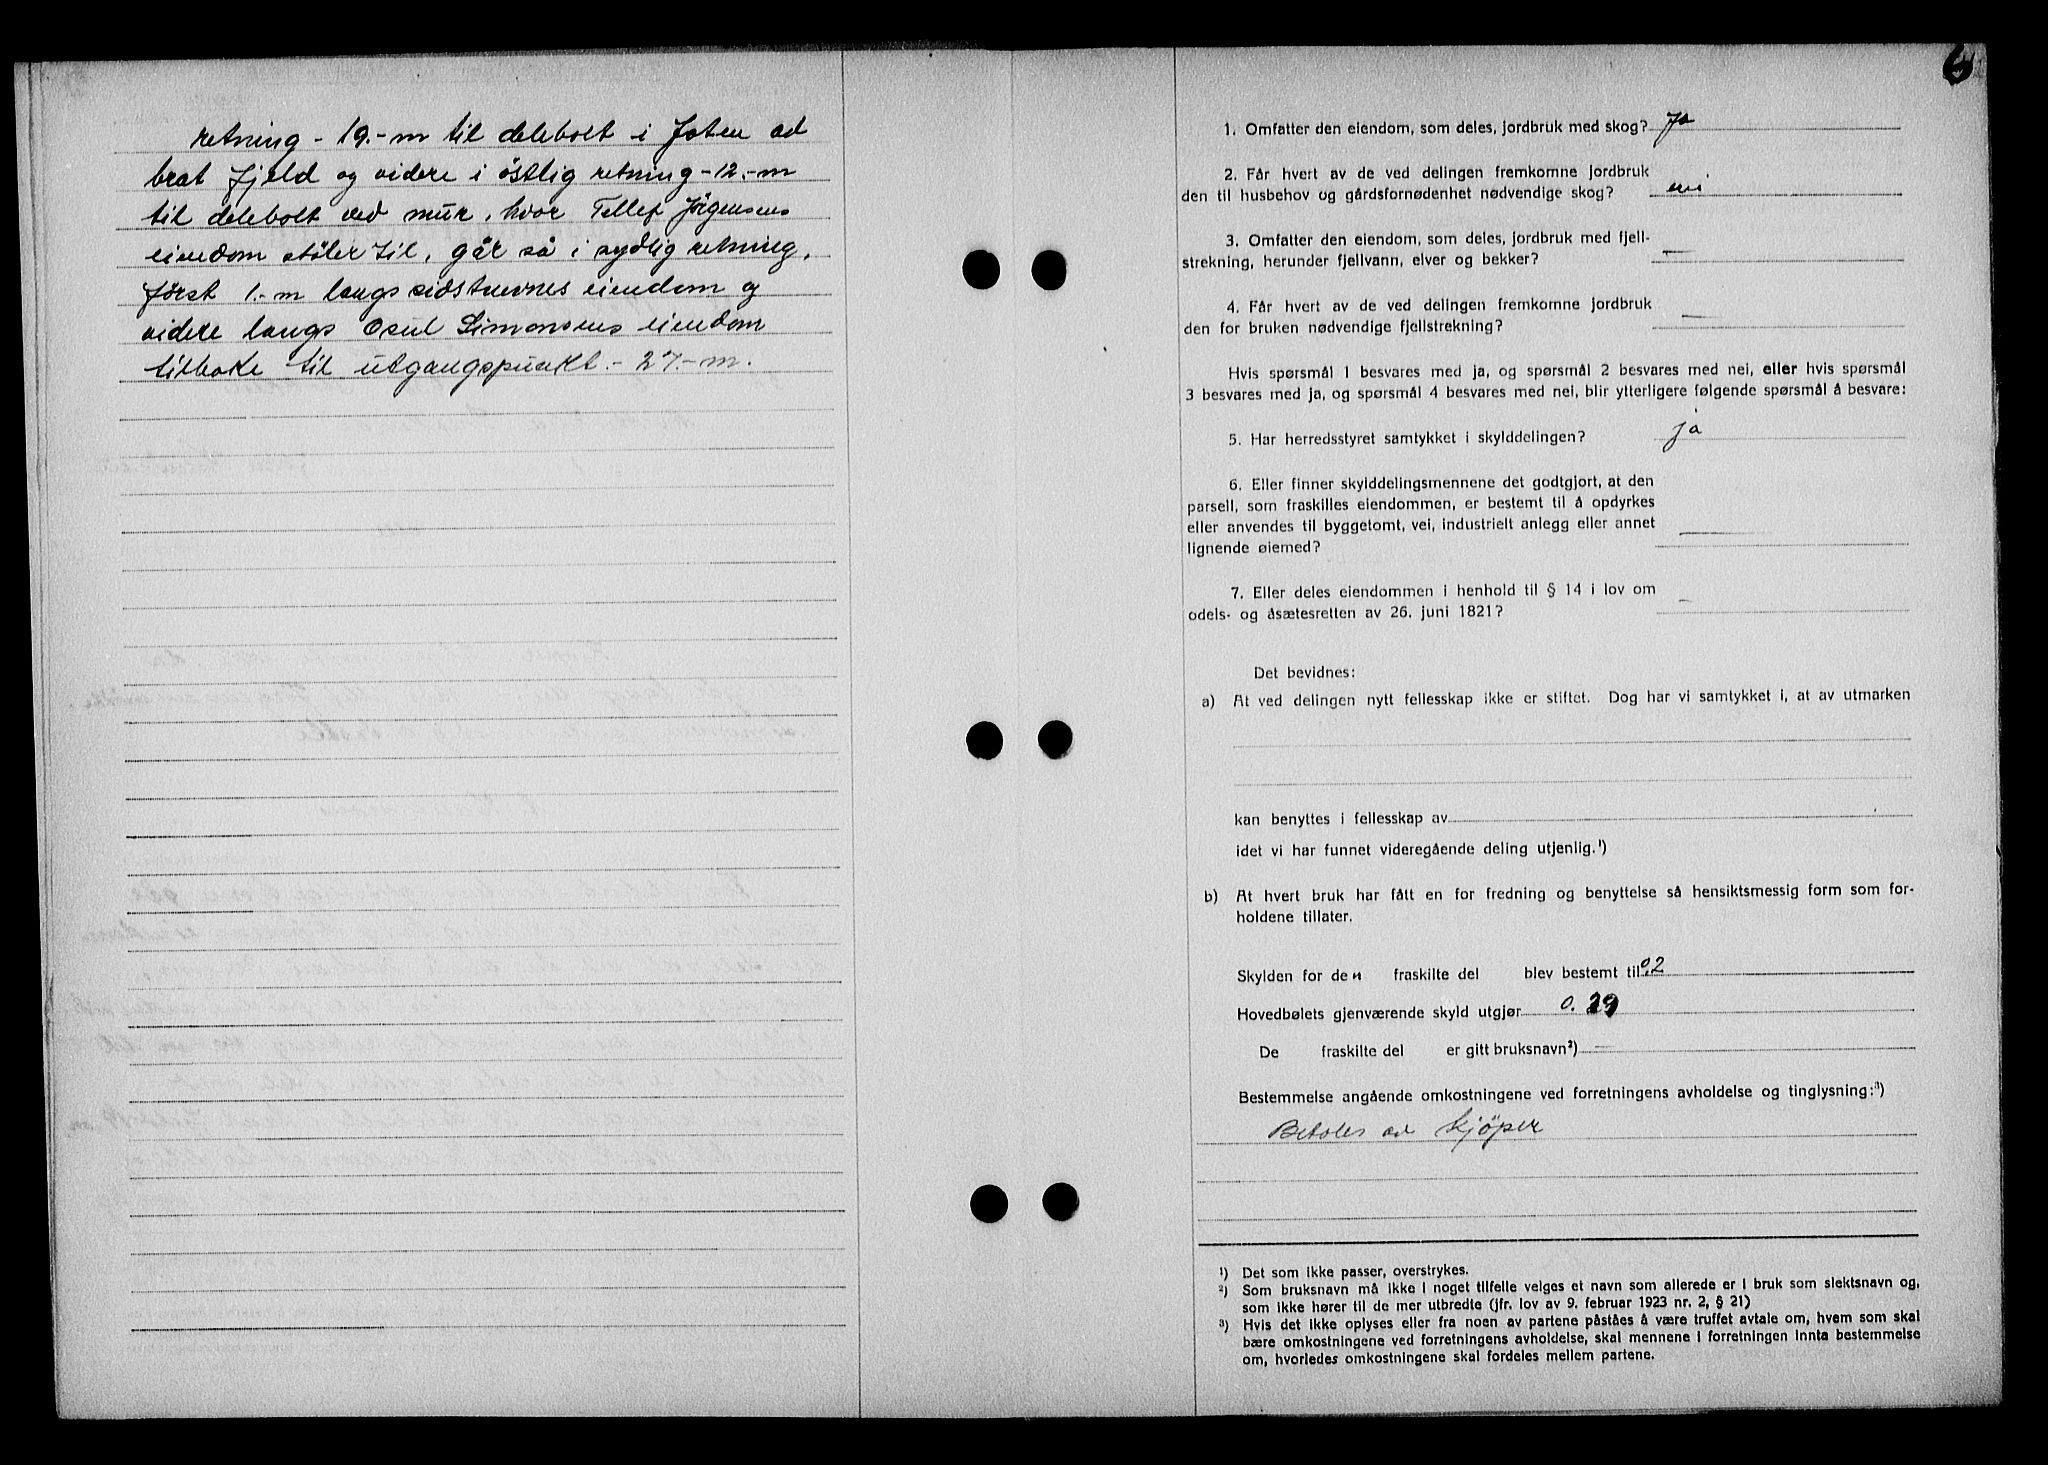 retning - 19.-m til delebolt i foten av
brat fjeld og videre i östlig retning - 12.-m
til delebolt ved mur, hvor Tellef Jörgensens
eiendom støter til, går så i sydlig retning,
först 1.-m langs sidstnevnes eiendom og
videre langs Osul Simonsens eiendom
tilbake til utgangspunkt. - 27.-m.
6
1. Omfatter den eiendom, som deles, jordbruk med skog? Ja
2. Får hvert av de ved delingen fremkomne jordbruk
den til husbehov og gårdsfornødenhet nødvendige skog? nei
3. Omfatter den eiendom, som deles, jordbruk med fjell-
strekning, herunder fjellvann, elver og bekker? —
4. Får hvert av de ved delingen fremkomne jordbruk
den for bruken nødvendige fjellstrekning? —
Hvis spørsmål 1 besvares med ja, og spørsmål 2 besvares med nei, eller hvis spørsmål
3 besvares med ja, og spørsmål 4 besvares med nei, blir ytterligere følgende spørsmål å besvare:
5. Har herredsstyret samtykket i skylddelingen? ja
6. Eller finner skylddelingsmennene det godtgjort, at den
parsell, som fraskilles eiendommen, er bestemt til å opdyrkes
eller anvendes til byggetomt, vei, industrielt anlegg eller annet
lignende øiemed? —
7. Eller deles eiendommen i henhold til § 14 i lov om
odels- og åsætesretten av 26. juni 1821? —
Det bevidnes:
a) At ved delingen nytt fellesskap ikke er stiftet. Dog har vi samtykket i, at av utmarken
kan benyttes i fellesskap av
idet vi har funnet videregående deling utjenlig.¹)
b) At hvert bruk har fått en for fredning og benyttelse så hensiktsmessig form som for-
holdene tillater.
Skylden for den fraskilte del blev bestemt til 0,2
Hovedbølets gjenværende skyld utgjør 0.29
De fraskilte del er gitt bruksnavn²) —
Bestemmelse angående omkostningene ved forretningens avholdelse og tinglysning:³)
Betales av kjöper
¹) Det som ikke passer, overstrykes.
²) Som bruksnavn må ikke i noget tilfelle velges et navn som allerede er i bruk som slektsnavn og,
som ikke hører til de mer utbredte (jfr. lov av 9. februar 1923 nr. 2, § 21)
³) Hvis det ikke oplyses eller fra noen av partene påståes å være truffet avtale om, hvem som skal
bære omkostningene ved forretningens avholdelse, skal mennene i forretningen innta bestemmelse
om, hvorledes omkostningene skal fordeles mellem partene.